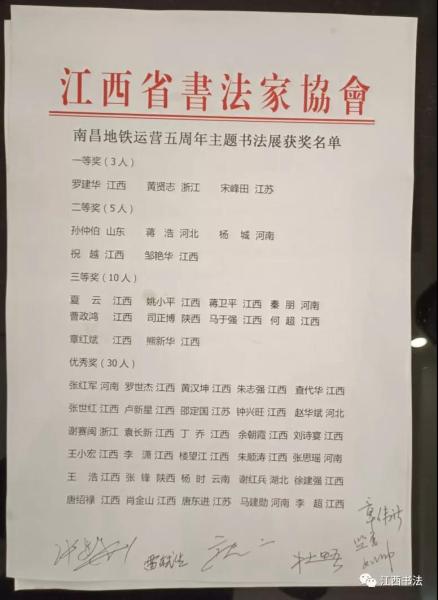 江西省書法家協會
南昌地铁运营五周年主题书法展获奖名单
一等奖（3人）
罗建华 江西 黄贤志 浙江 宋峰田 江苏
二等奖（5人）
孙仲伯 山东 蒋 浩 河北 杨 城 河南
祝 越 江西 邹艳华 江西
三等奖（10人）
夏 云 江西 姚小平 江西 蒋卫平 江西 秦 朋 河南
曹政鸿 江西 司正博 陕西 马于强 江西 何 超 江西
章红斌 江西 熊新华 江西
优秀奖（30人）
张红军 河南 罗世杰 江西 黄汉坤 江西 朱志强 江西 查代华 江西
张世红 江西 卢新星 江西 邵定国 江苏 钟兴旺 江西 赵华斌 河北
谢赛闽 浙江 袁长新 江西 丁 乔 江西 余朝霞 江西 刘诗宴 江西
王小宏 江西 李 潇 江西 楼望江 江西 朱顺涛 江西 张思瑶 河南
王 浩 江西 张 锋 陕西 杨 时 云南 谢红兵 湖北 徐建强 江西
唐绍禄 江西 肖金山 江西 唐东进 江苏 马建勋 河南 李 超 江西
江西书法